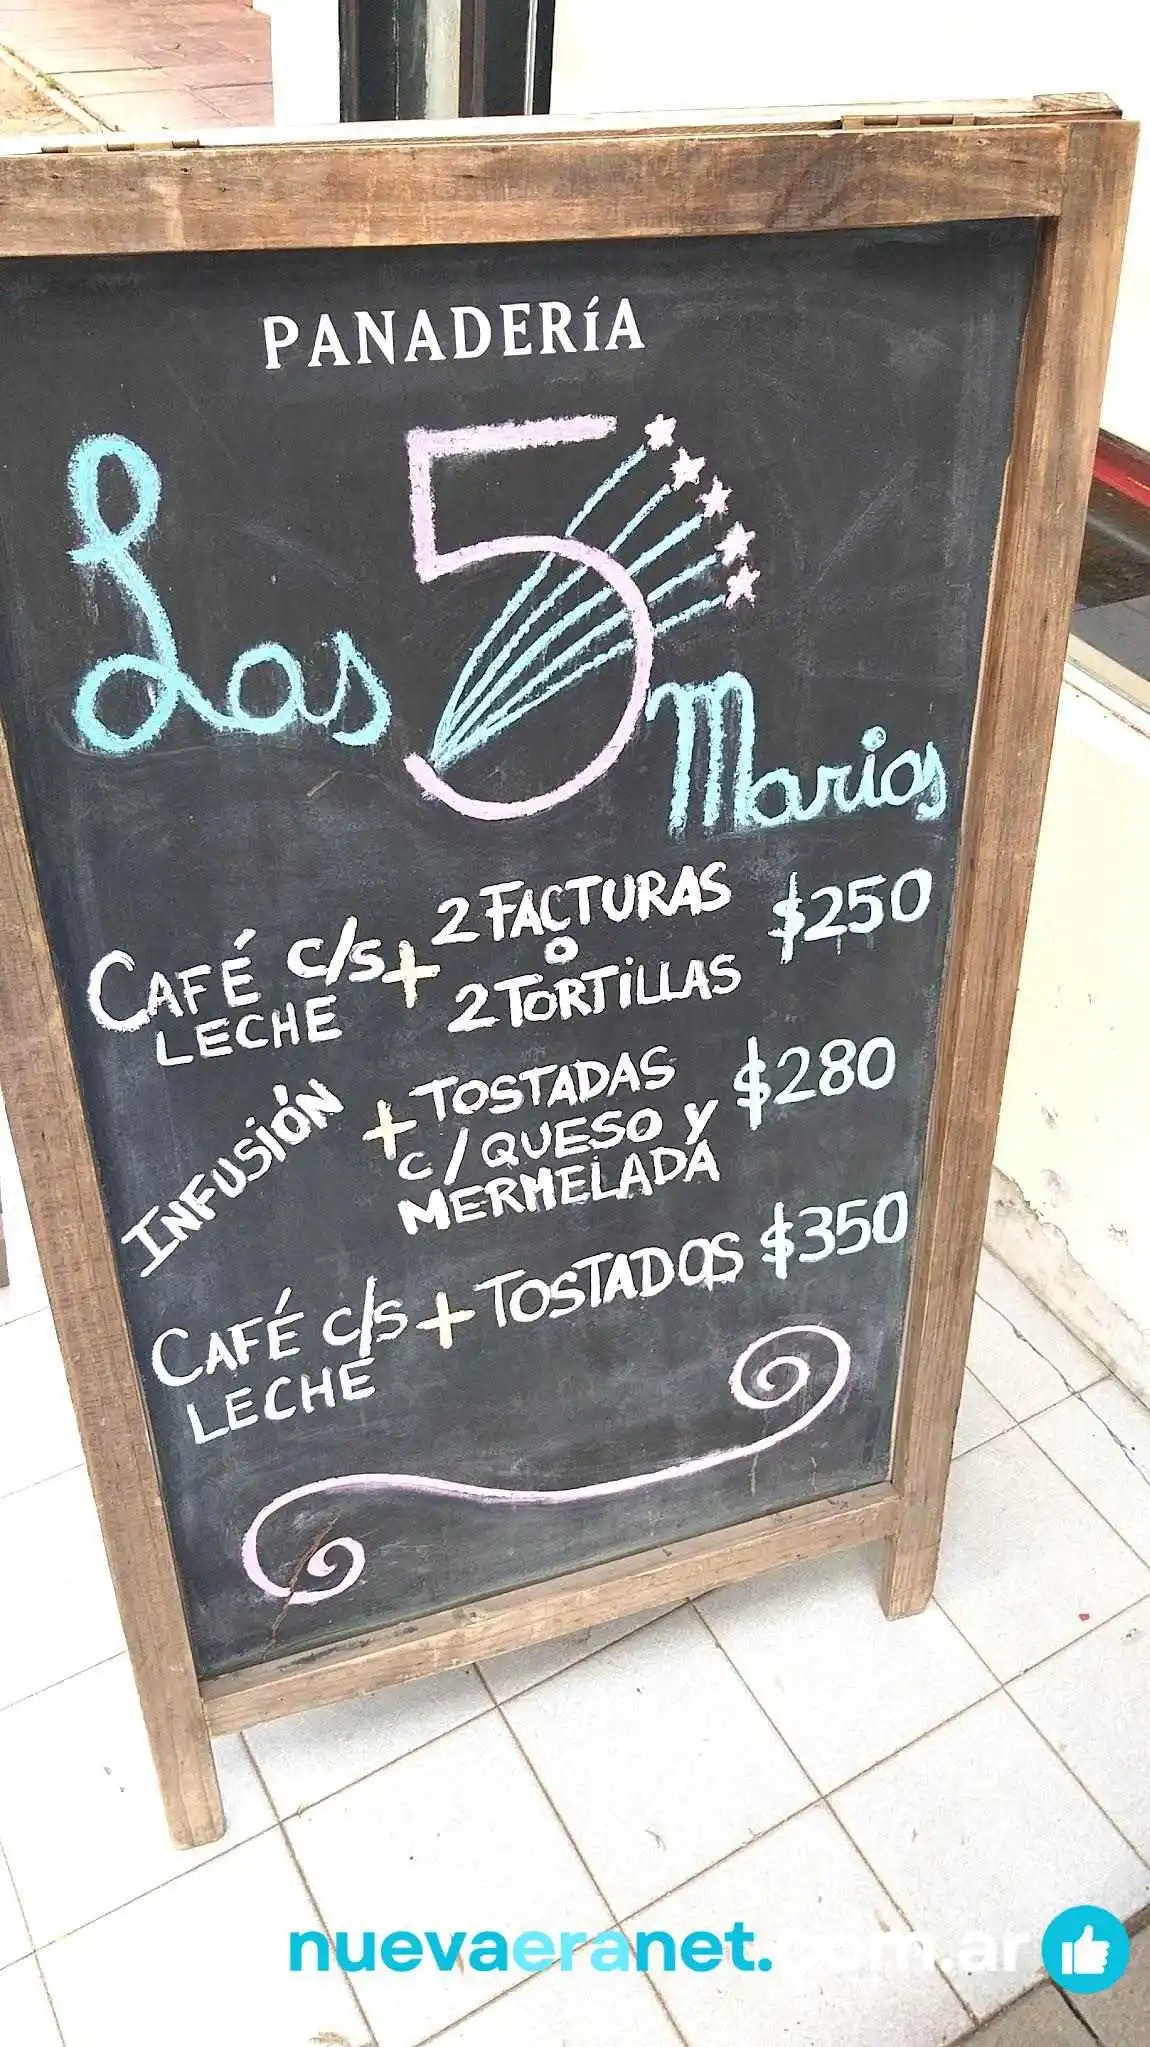 PANADERíA
Las 5 Marias
CAFÉ c/s + 2 FACTURAS $250
LECHE
o
2 TORTiLLAS
INFUSIÓN + TOSTADAS $280
c/QUESO y
MERMELADA
CAFÉ c/s + TOSTADOS $350
LECHE
nuevaeranet.com.ar